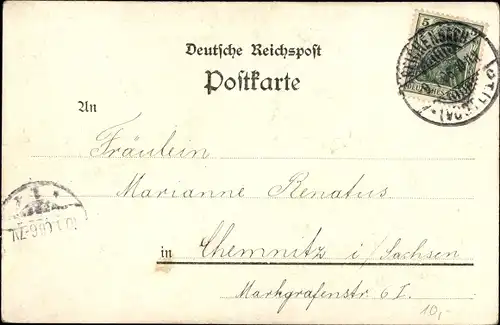 5
Deutsche Reichspost
Postkarte
An
Fräulein
Marianne Renatus
in Chemnitz i/Sachsen
Markgrafenstr. 6 I.
10,-